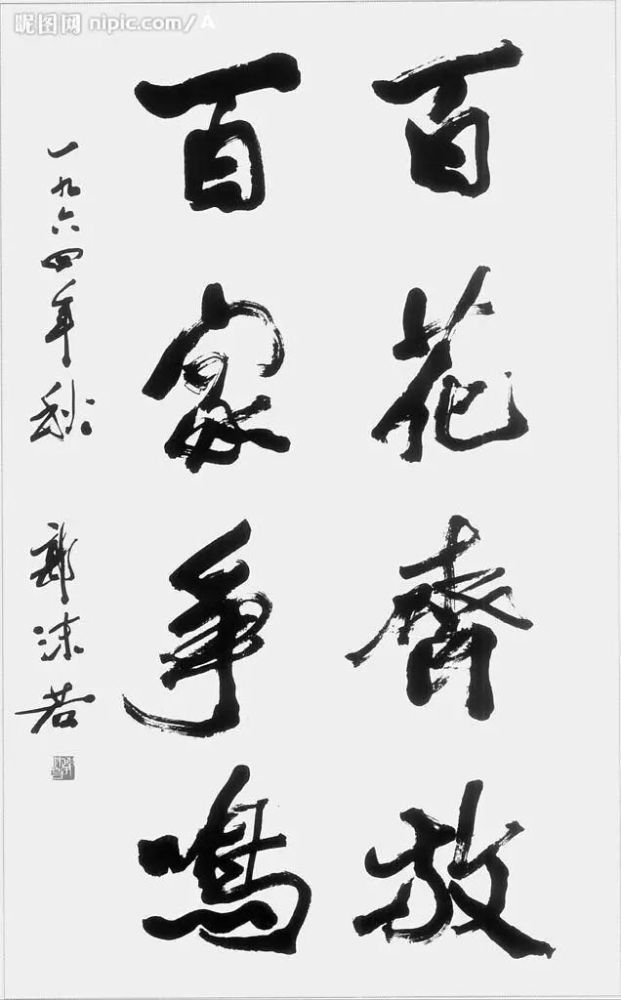 百花齊放
百家爭鳴
一九六四年秋 郭沫若
昵图网 nipic.com/A